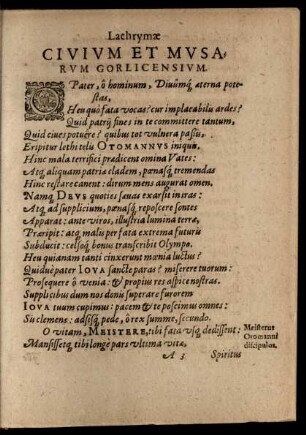 Lachrymæ
CIVIVM ET MVSA-
RVM GORLICENSIVM.
O Pater, ô hominum, Diuûmq́, æterna pote-
stas,
Heu quò fata vocas? cur implacabilis ardes?
Quid patrij fines in te committere tantum,
Quid ciues potuêre? quibus tot vulnera passis,
Eripitur lethi telis OTOMANNVS iniquis,
Hinc mala terrifici prædicent omina Vates:
Atq́ aliquam patriæ cladem, pœnasq́ tremendas
Hinc restare canent: dirum mens augurat omen.
Namq́ DEVS quoties sæuas exarsit in iras:
Atq́ ad supplicium, pœnasq́, reposcere sontes
Apparat: ante viros, illustria lumina terræ,
Præripit: atq́ malu per fata extrema futuris
Subducit: celsoq́ bonus transcribit Olympo.
Heu quianam tanti cinxerunt mœnia luctus?
Quidue pater IOVA sancte paras? miserere tuorum:
Prosequere ô venia: & propius res aspice nostras.
Supplicibus dum nos donis superare furorem
IOVA tuum cupimus: pacem & te poscimus omnes:
Sis clemens: adsisq́ pede, ô rex summe, secundo.
O vitam, MEISTERE, tibi fata vsq́ dedissent:
Mansissetq́ tibi longè pars vltima vitæ,
Meisterus
Otomanni
discipulus.
A 3. Spiritus